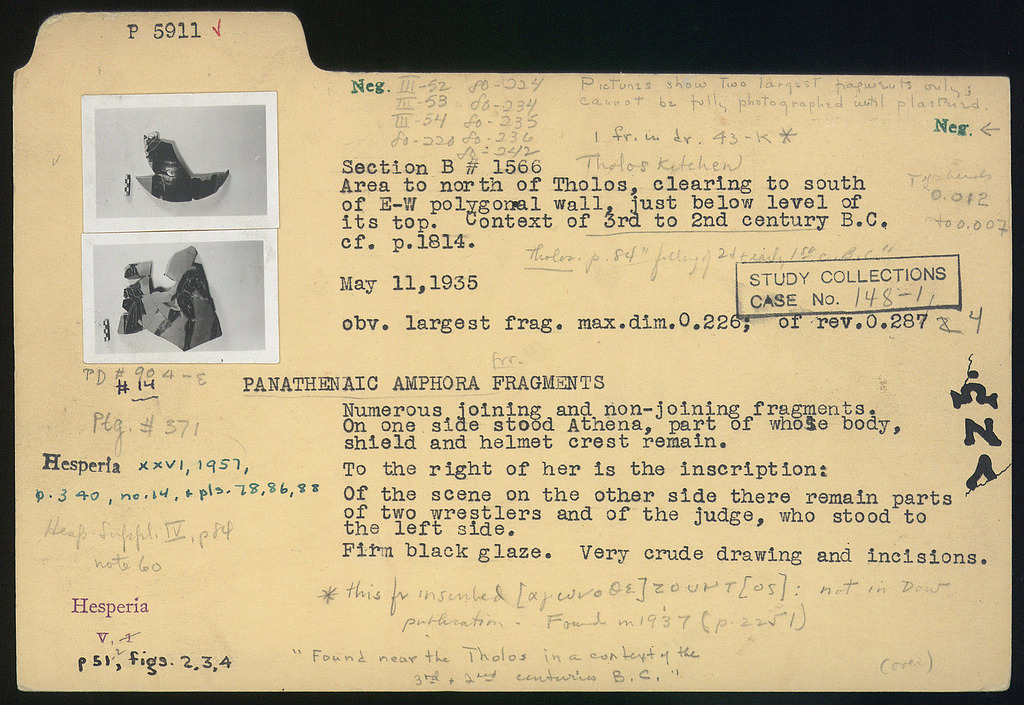 P 5911 ✓
Neg. III-52 80-224
III-53 80-234
III-54 80-235
80-220 80-236
80-242
Pictures show two largest fragments only;
cannot be fully photographed until plastered.
Neg. ←
1 fr. in dr. 43-K *
Tholos Kitchen
Section B # 1566
Area to north of Tholos, clearing to south
of E-W polygonal wall, just below level of
its top. Context of 3rd to 2nd century B.C.
cf. p.1814.
0.012
to 0.007
Tholos. p. 84 "filling of 2d + early 1st c. B.C."
May 11,1935
STUDY COLLECTIONS
CASE No. 148-1,
obv. largest frag. max.dim.0.226; of rev.0.287
4
frr.
PANATHENAIC AMPHORA FRAGMENTS
PD # 904-E
# 14
Ptg. # 371
Numerous joining and non-joining fragments.
On one side stood Athena, part of whose body,
shield and helmet crest remain.
To the right of her is the inscription:
Of the scene on the other side there remain parts
of two wrestlers and of the judge, who stood to
the left side.
Firm black glaze. Very crude drawing and incisions.
Hesperia XXVI, 1957,
p. 340, no. 14, + pls. 78, 86, 88
Hesp. Suppl. IV, p84
note 60
Hesperia
V, 1
2
p 51, figs. 2, 3, 4
* this fr inscribed [αγωνοθε]ΖΟΥΝΤ[ος]: not in Dow
publication. Found in 1937 (p. 2251)
"Found near the Tholos in a context of the
3rd + 2nd centuries B.C."
(over)